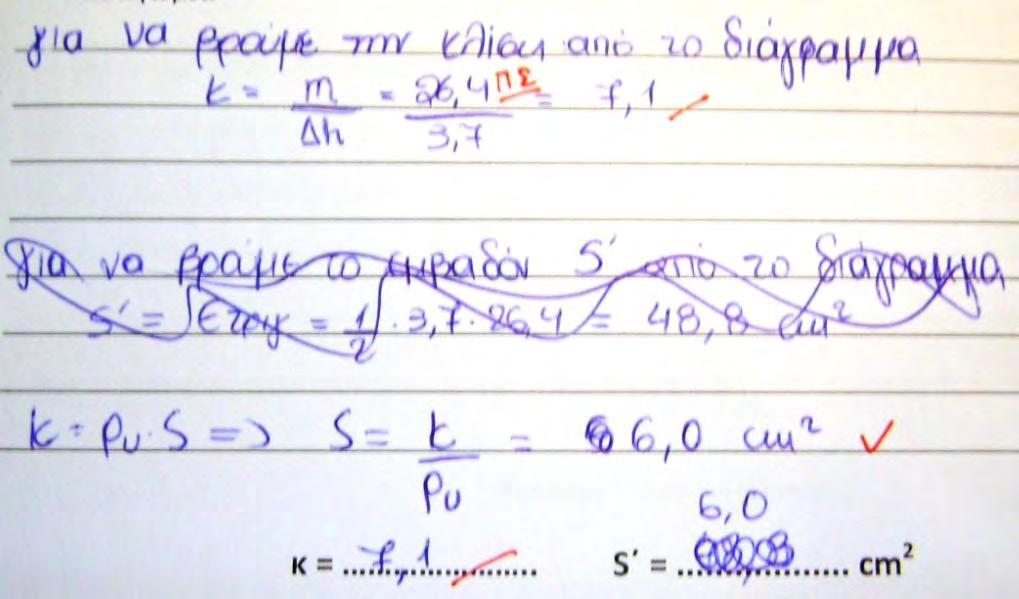 για να βρούμε την κλίση από το διάγραμμα
k = m/Δh = 26,4/3,7 ΠΣ = 7,1
για να βρούμε το εμβαδόν S΄ από το διάγραμμα
S΄ = Ετριγ = 1/2 · 3,7 · 26,4 = 48,8 cm²
k = ρυ · S => S = k/ρυ = 6,0 cm² ✓
6,0
κ = ...7,1... S΄ = ... cm²